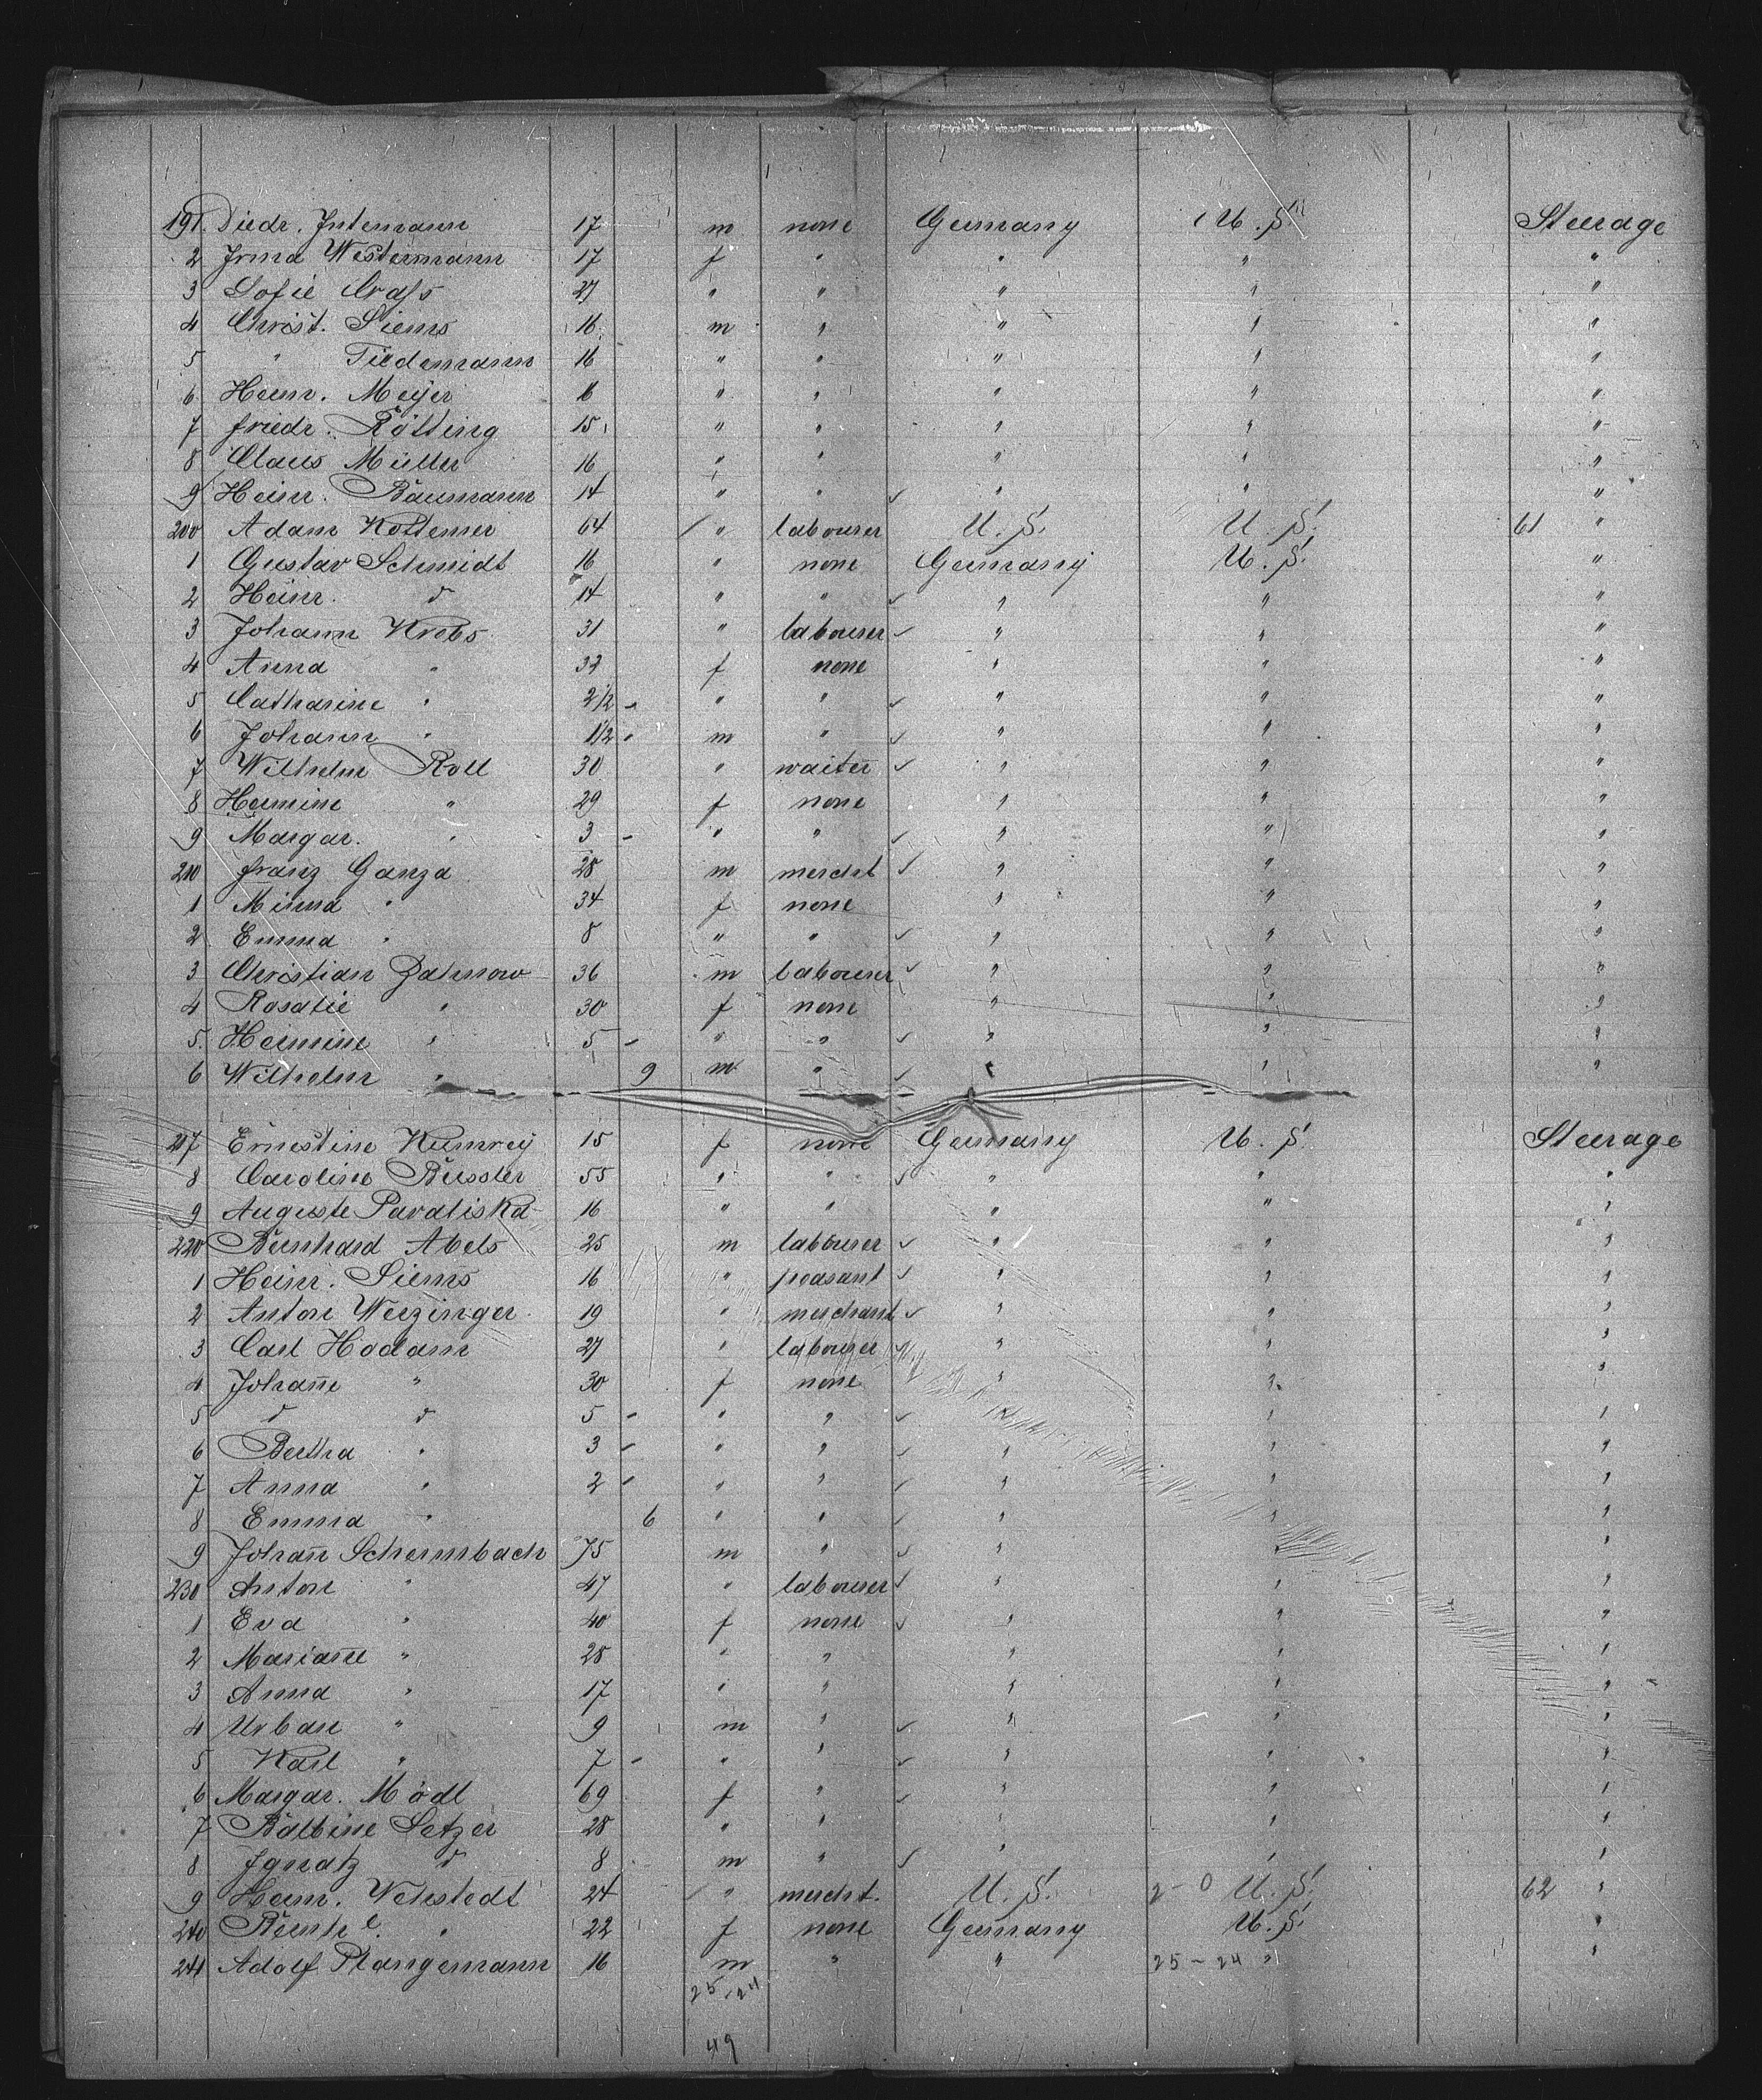 191. Diedr. Intemann 17 m none Germany U. S. Steerage
2 Irma Westermann 17 f " " " "
3 Sofie Crass 27 " " " " "
4 Christ. Siems 16 m " " " "
5 " Tiedemann 16 " " " " "
6 Heinr. Meyer 16 " " " " "
7 Friedr. Rötting 15 " " " " "
8 Claus Müller 16 " " " " "
9 Heinr. Baumann 14 " " ✓ " " "
200 Adam Kottemer 64 / " labourer U. S. U. S. 61 "
1 Gustav Schmidt 16 " none Germany U. S. "
2 Heinr. d 14 " " ✓ " " "
3 Johann Krebs 31 " labourer ✓ " " "
4 Anna " 32 f none " " "
5 Catharine " 2 1/2 - " " ✓ " " "
6 Johann " 1 1/2 - m " ✓ " " "
7 Wilhelm Roll 30 " waiter ✓ " " "
8 Hermine " 29 f none " " "
9 Margar. " 3 - " " ✓ " " "
210 Franz Ganza 28 m merch't ✓ " " "
1 Minna " 34 f none " " "
2 Emma " 8 " " ✓ " " "
3 Christian Zahnow 36 m labourer ✓ " " "
4 Rosalie " 30 f none " " "
5. Hermine " 5 - " " ✓ " " "
6 Wilhelm " 9 m " ✓ " " "
217 Ernestine Kumrey 15 f none Germany U. S. Steerage
8 Caroline Bussler 55 " " ✓ " " "
9 Auguste Pavaliska 16 " " " " "
220 Bernhard Abels 25 m labourer ✓ " " "
1 Heinr. Siems 16 " peasant ✓ " " "
2 Anton Werzinger 19 " merchant ✓ " " "
3 Carl Hodam 27 " labourer " " "
4 Johañe " 30 f none " " "
5 d d 5 - " " ✓ " "
6 Bertha " 3 - " " ✓ " " "
7 Anna " 2 - " " ✓ " " "
8 Emma " 6 " " ✓ " " "
9 Johañ Schermbach 75 m " ✓ " " "
230 Anton " 47 " labourer ✓ " " "
1 Eva " 40 f none ✓ " " "
2 Mariañe " 28 " " " " "
3 Anna " 17 " " " " "
4 Urban " 9 m " ✓ " " "
5 Karl " 7 - " " ✓ " " "
6 Margar. Mödl 69 f " ✓ " " "
7 Balbine Setzer 28 " " " " "
8 Ignatz d 8 m " ✓ " " "
9 Heinr. Wehstedt 24 / " merch't. U. S. 2-0 U. S. 62 "
240 " 22 f none Germany U. S. "
241 Adolf Plangemann 16 m " " 25-24 " "
25-24
49